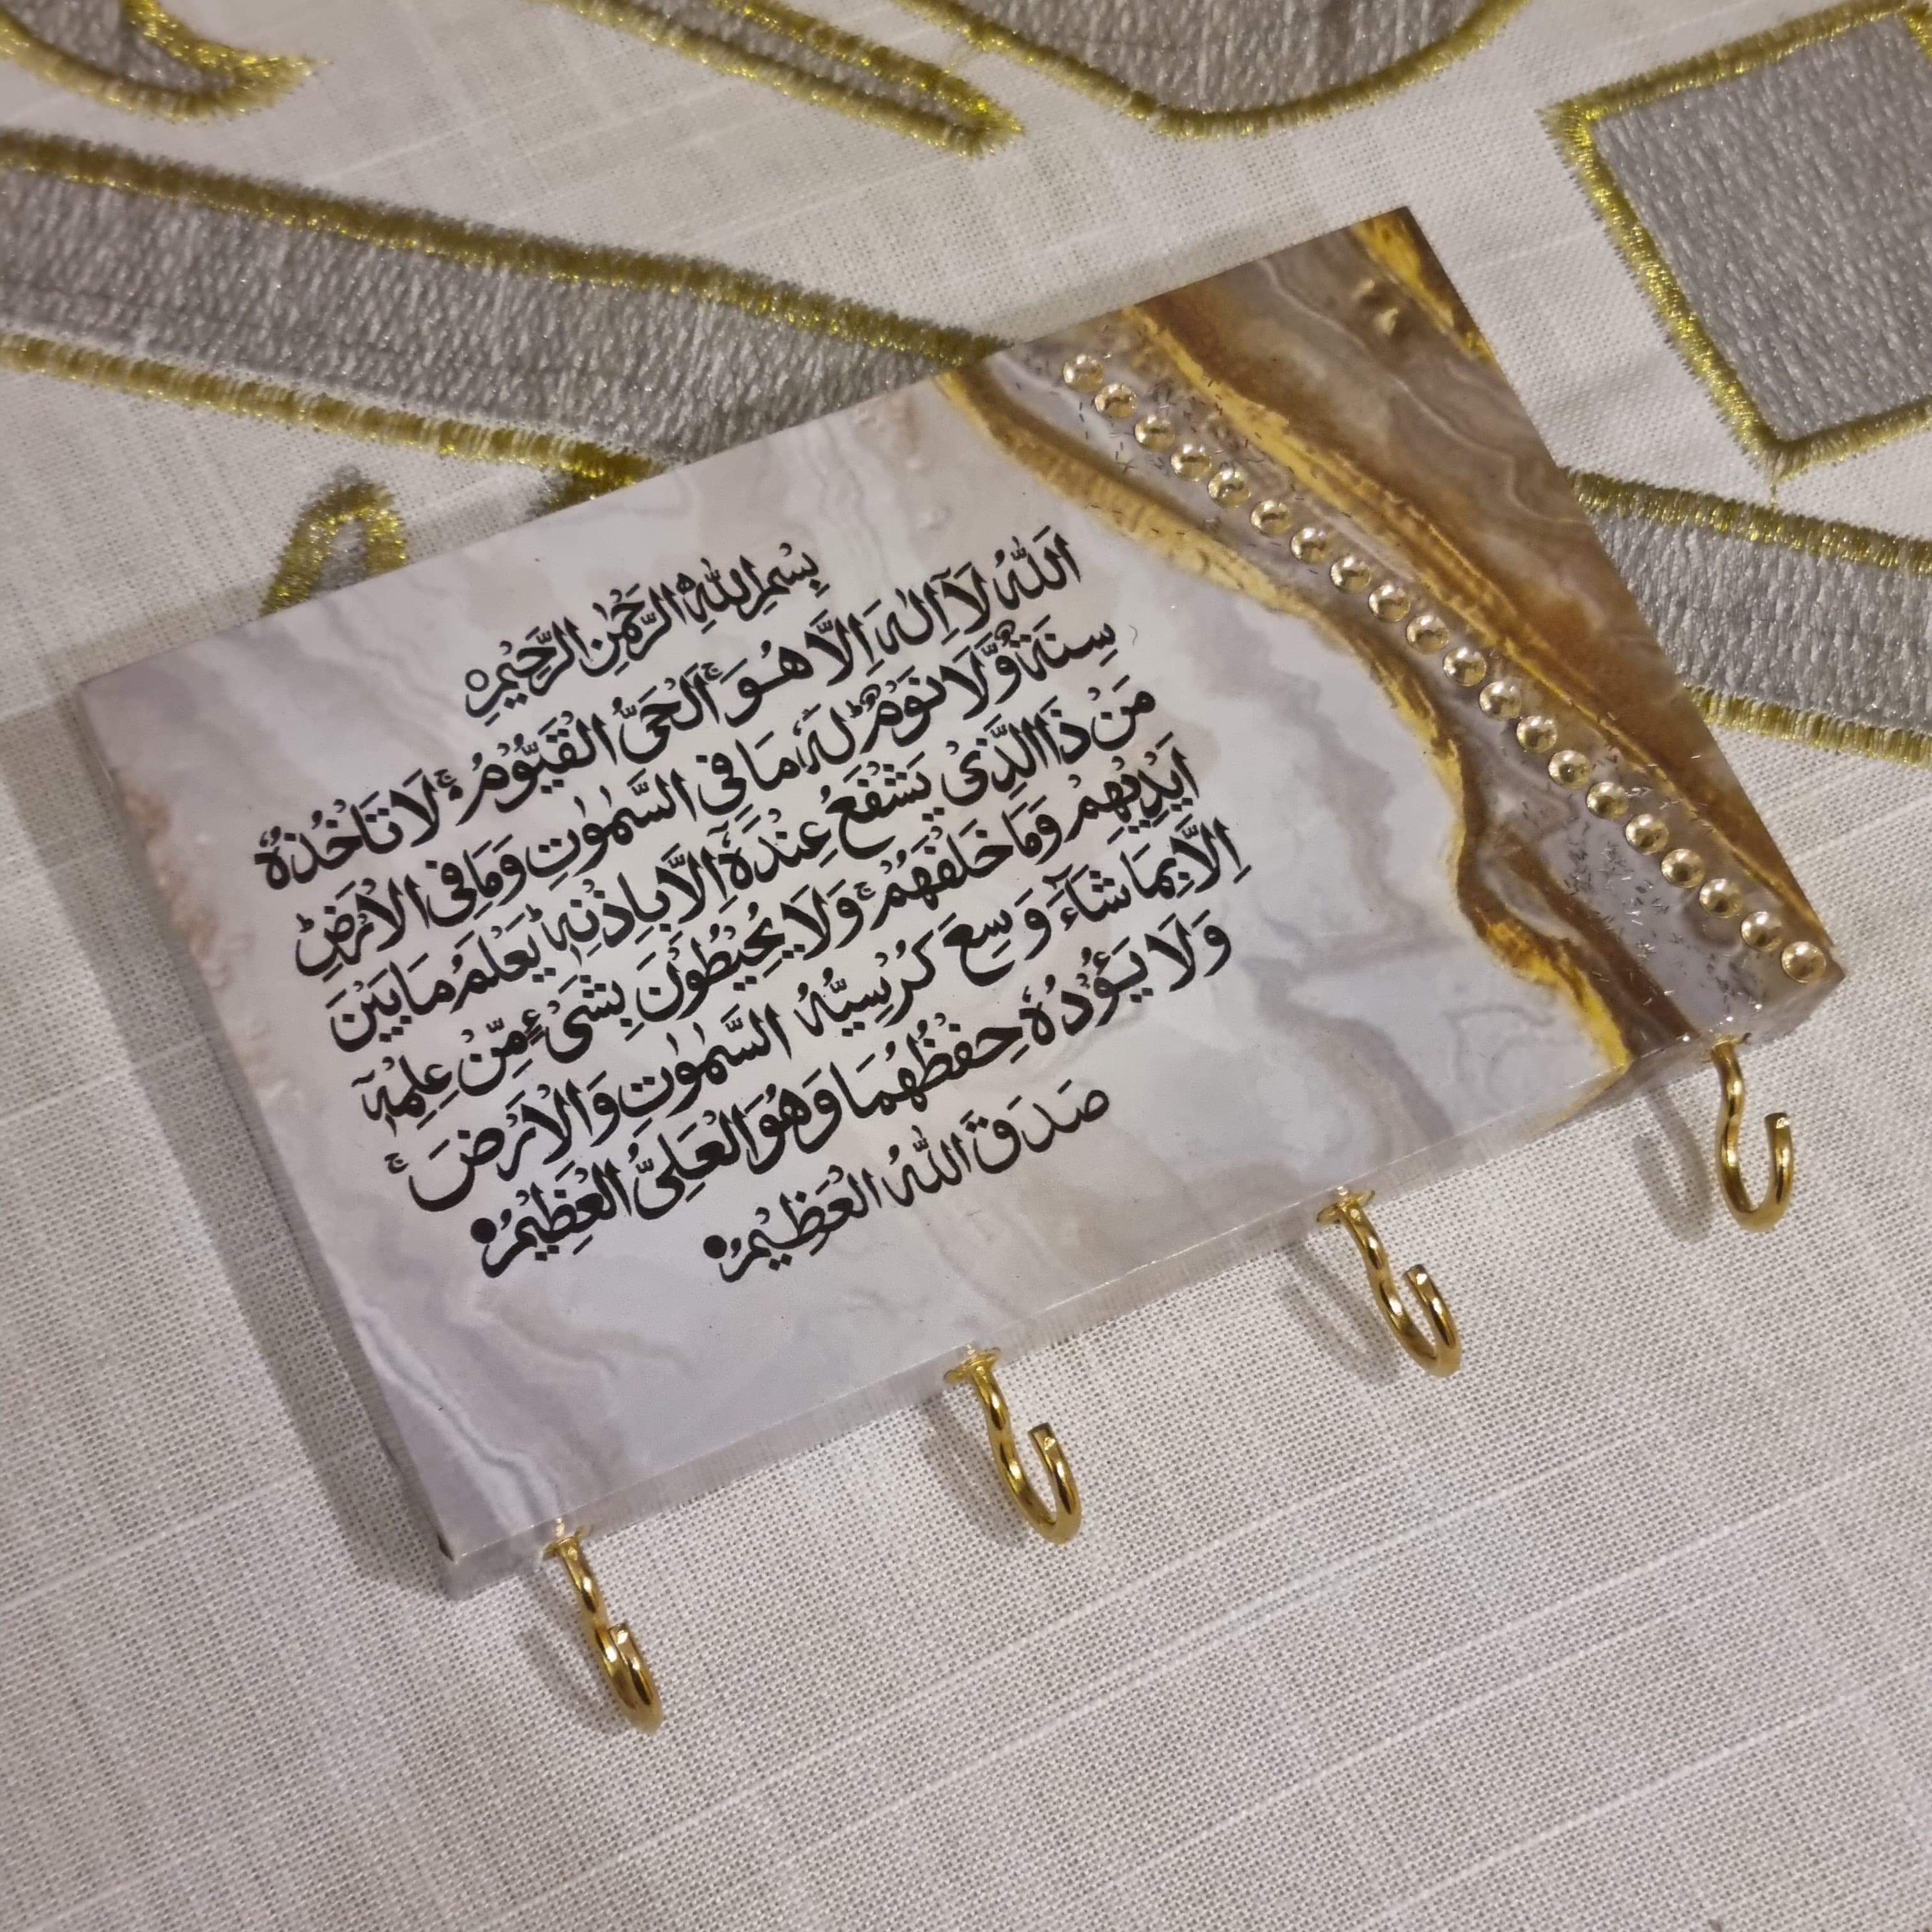 بِسْمِ اللّٰهِ الرَّحْمٰنِ الرَّحِيْمِ
اَللّٰهُ لَآ اِلٰهَ اِلَّا هُوَ ۚ اَلْحَيُّ الْقَيُّوْمُ ۚ لَا تَاْخُذُهٗ
سِنَةٌ وَّلَا نَوْمٌ ؕ لَهٗ مَا فِي السَّمٰوٰتِ وَمَا فِي الْاَرْضِ ؕ
مَنْ ذَا الَّذِيْ يَشْفَعُ عِنْدَهٗٓ اِلَّا بِاِذْنِهٖ ؕ يَعْلَمُ مَا بَيْنَ
اَيْدِيْهِمْ وَمَا خَلْفَهُمْ ۚ وَلَا يُحِيْطُوْنَ بِشَيْءٍ مِّنْ عِلْمِهٖٓ
اِلَّا بِمَا شَآءَ وَسِعَ كُرْسِيُّهُ السَّمٰوٰتِ وَالْاَرْضَ ۚ
وَلَا يَـُٔوْدُهٗ حِفْظُهُمَا وَهُوَ الْعَلِيُّ الْعَظِيْمُ
صَدَقَ اللّٰهُ الْعَظِيْمُ